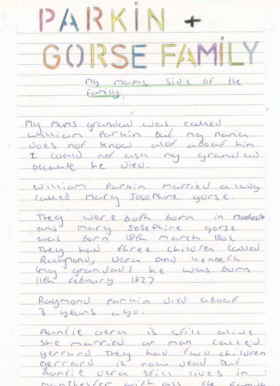 PARKIN +
GORSE FAMILY
My mums side of the
family.
My mums grandad was called
William Parkin but my nana
does not know alot about him
I could not ask my grandad
because he died.
William Parkin married a lady
called Mary Josephine gorse
They were both born in
and Mary Josephine gorse
was born 18th March
They had three children called
Raymond, Vera and Kenneth
(my grandad) he was born
11th february 1927
Raymond Parkin died about
3 years ago.
Auntie Vera is still alive
She married a man called
gerrard They had two children
gerrard is now dead but
Auntie Vera still lives in
Manchester with